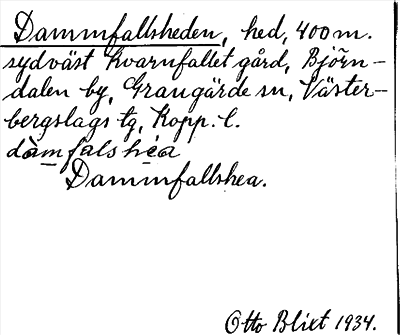 Dammfallsheden, hed, 400 m.
sydväst Kvarnfallet gård, Björn-
dalen by, Grangärde sn, Väster-
bergslags tg, Kopp. l.
dàmfalshéa
Dammfallshea.
Otto Blixt 1934.